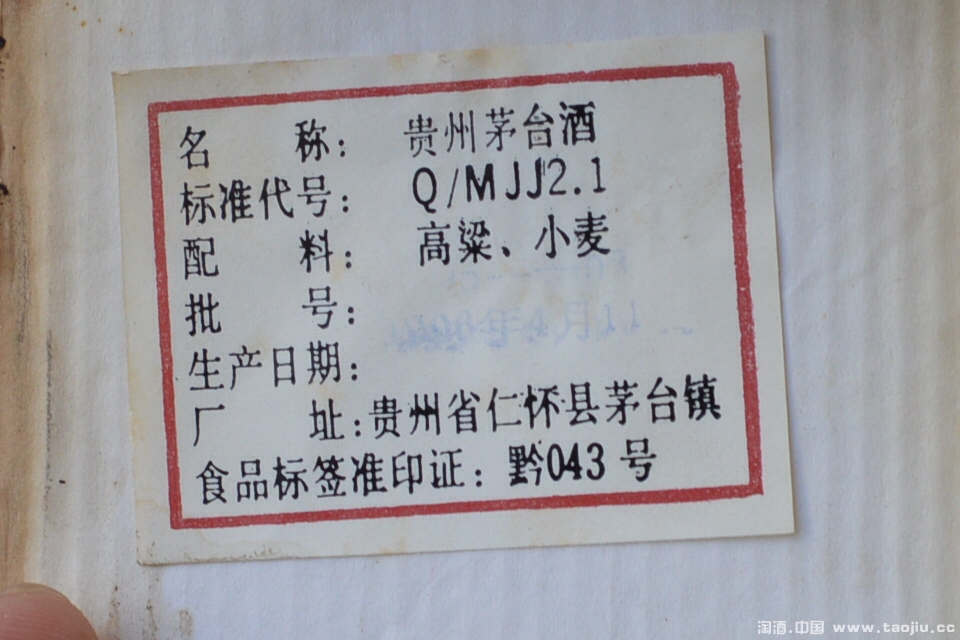 名 称： 贵州茅台酒
标准代号： Q/MJJ2.1
配 料： 高粱、小麦
批 号：
生产日期：
厂 址：贵州省仁怀县茅台镇
食品标签准印证：黔043号
淘酒.中国 www.taojiu.cc